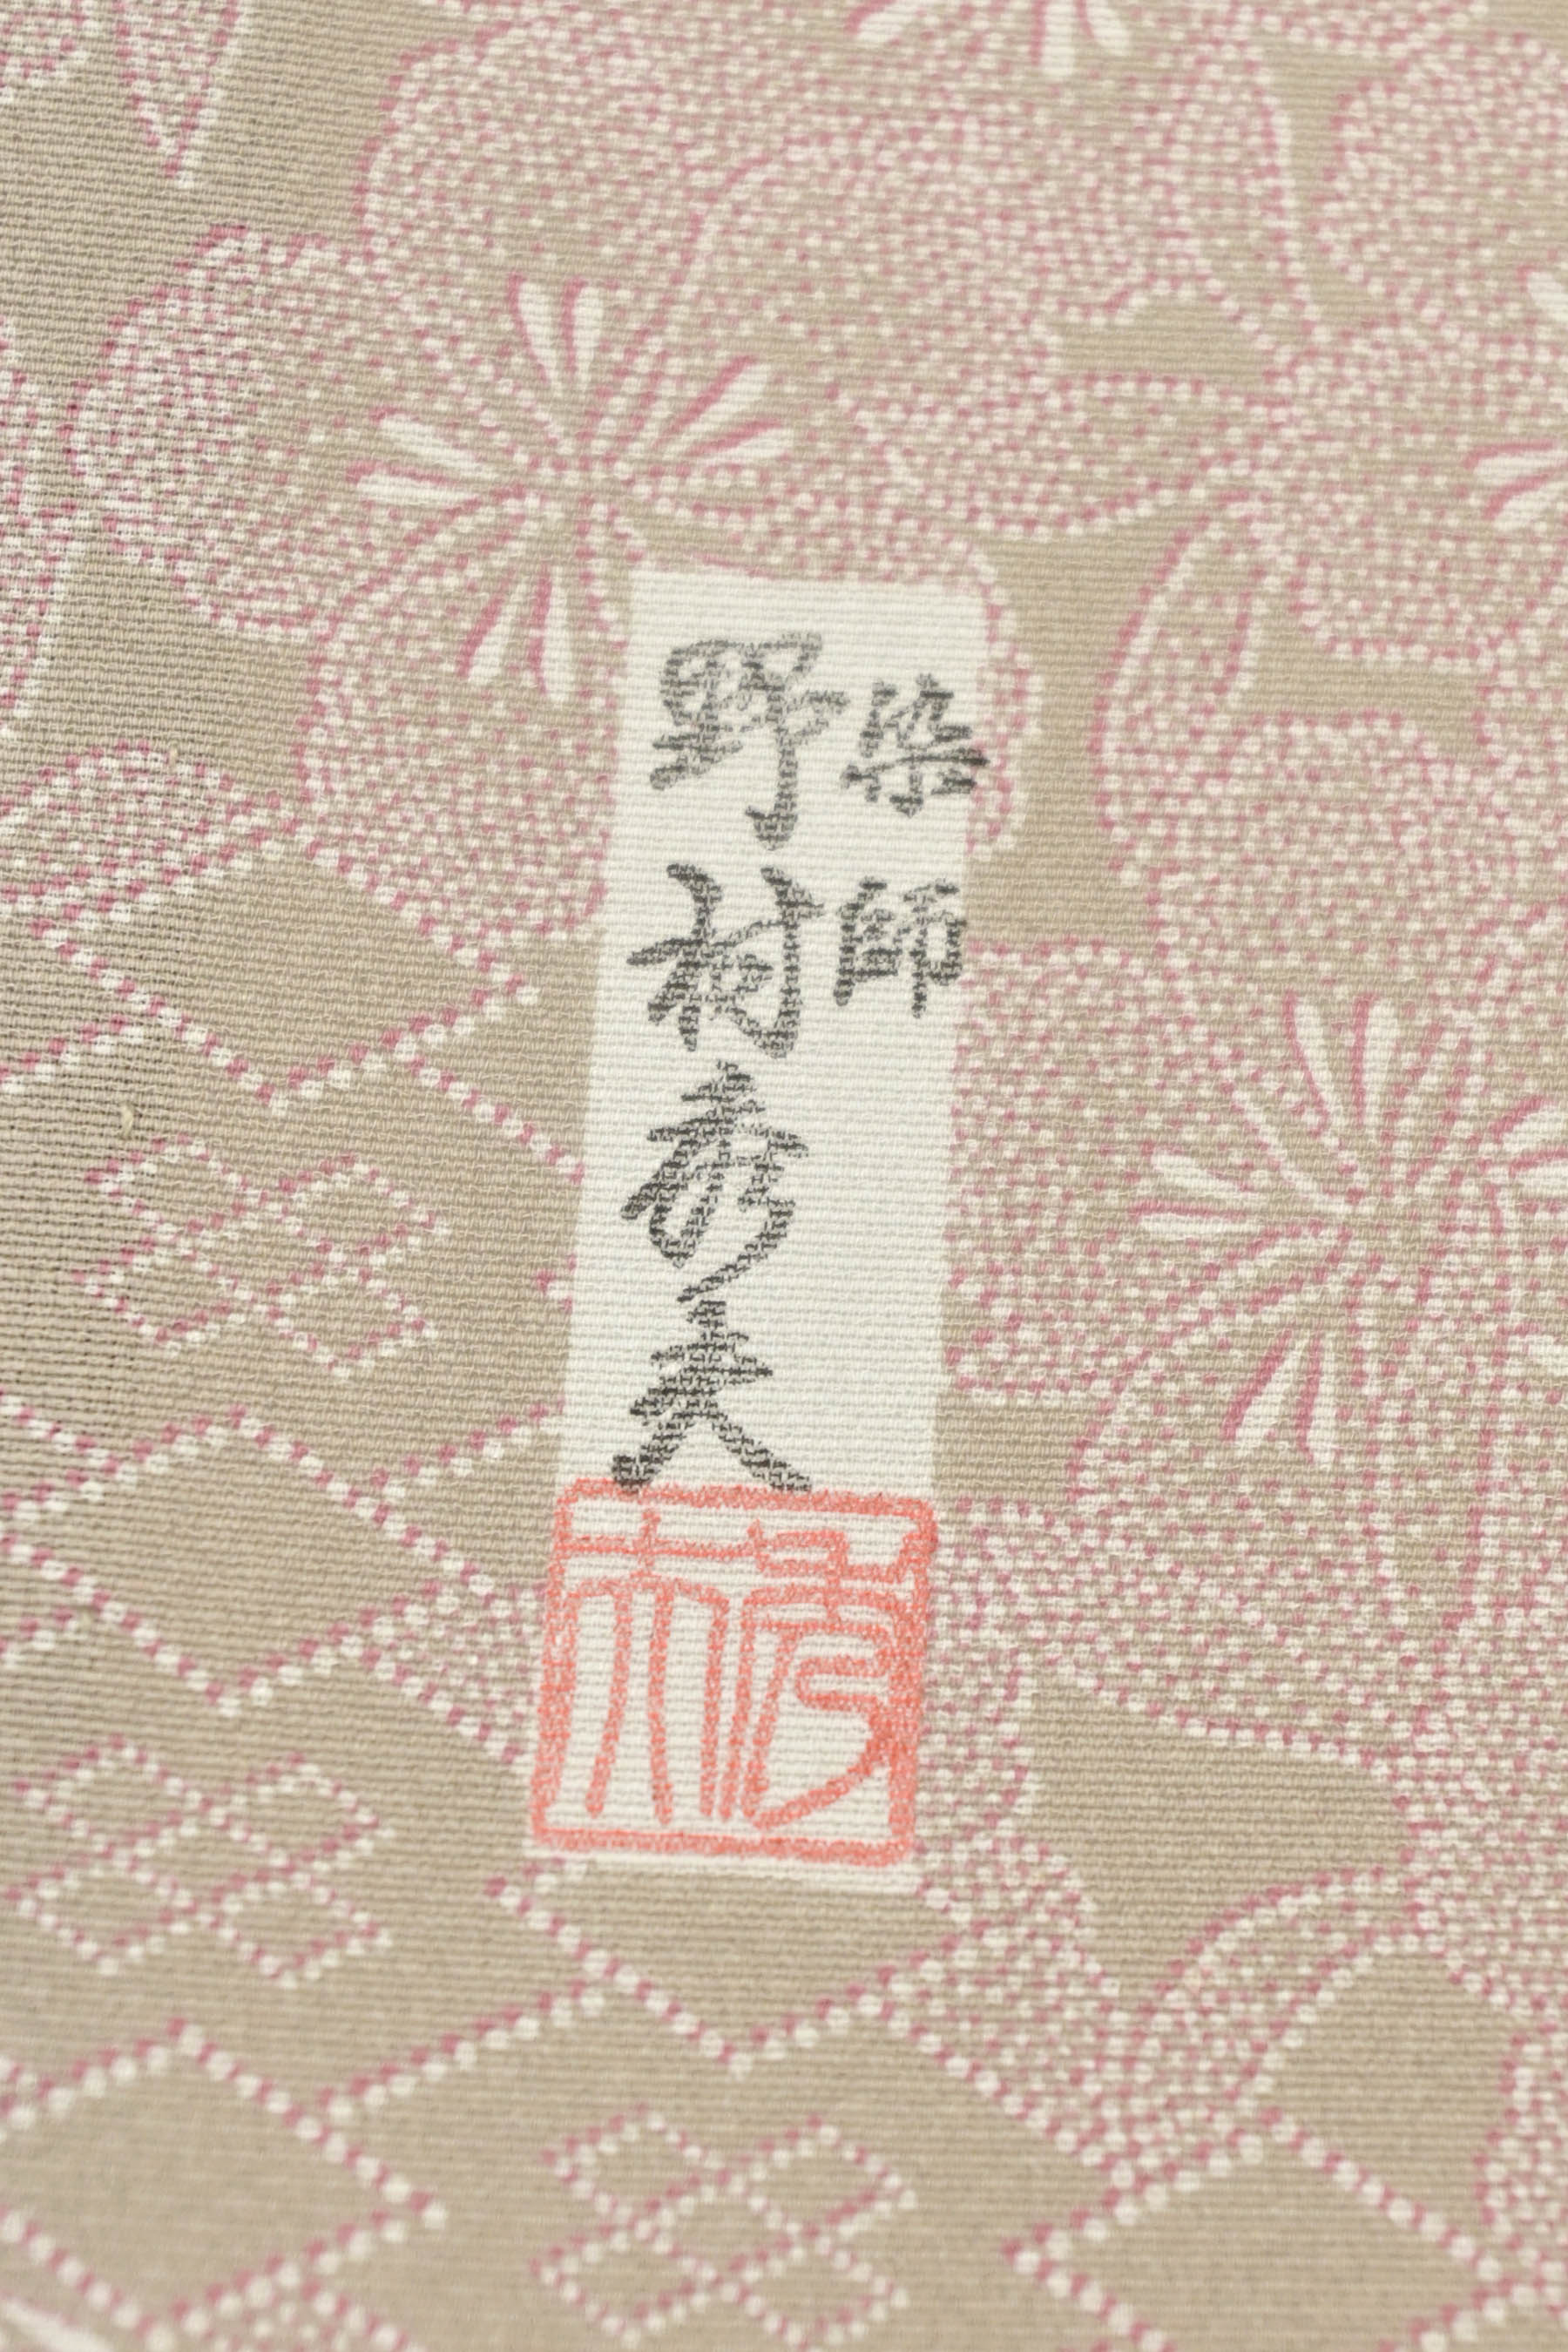 染師
野村秀夫